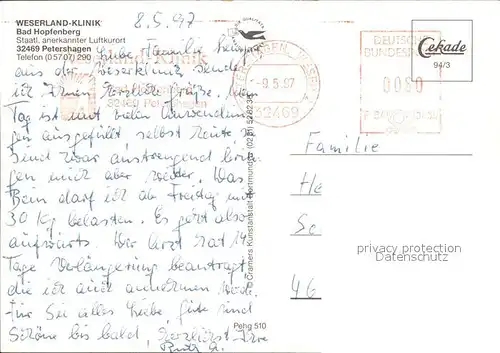 WESERLAND-KLINIK
Bad Hopfenberg
Staatl. anerkannter Luftkurort
32469 Petershagen
Telefon (05707) 290
8.5.97
Liebe Familie
aus der Weserklinik sende
ich Ihnen herzliche Grüße. Mein
Tag ist mit vielen Anwendun-
gen ausgefüllt selbst heute,
sind zwar anstrengend brin-
gen mich aber weiter. Das
Bein darf ich ab Freitag mit
30 Kg belasten. Es geht also
aufwärts. Der Arzt hat 14
Tage Verlängerung beantragt
die ich auch annehmen
Für Sie alles Liebe, Gute und
Schöne bis bald, herzlichst Ihre
Ruth
© Cramers Kunstanstalt Dortmund
Pehg 510
-9.5.97
32469
DEUTSCHE
BUNDESPOST
0080
Cekade
94/3
Familie
He
So
46
privacy protection
Datenschutz